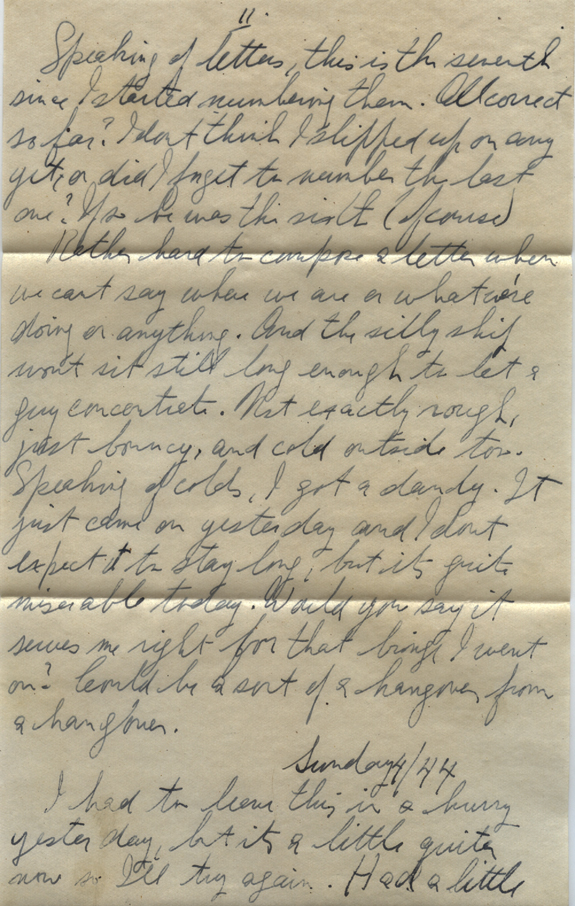 11.
Speaking of letters, this is the seventh
since I started numbering them. All correct
so far? I don't think I slipped up on any
yet, or did I forget to number the last
one? If so he was the sixth (of course)
Rather hard to compose a letter when
we cant say where we are or what we're
doing or anything. And the silly ship
wont sit still long enough to let a
guy concentrate. Not exactly rough,
just bouncy, and cold outside too.
Speaking of colds, I got a dandy. It
just came on yesterday and I dont
expect it to stay long, but its quite
miserable today. Would you say it
serves me right for that binge I went
on? Could be a sort of a hangover from
a hangover.
Sunday /44
I had to leave this in a hurry
yesterday, but its a little quieter
now so I'll try again. Had a little